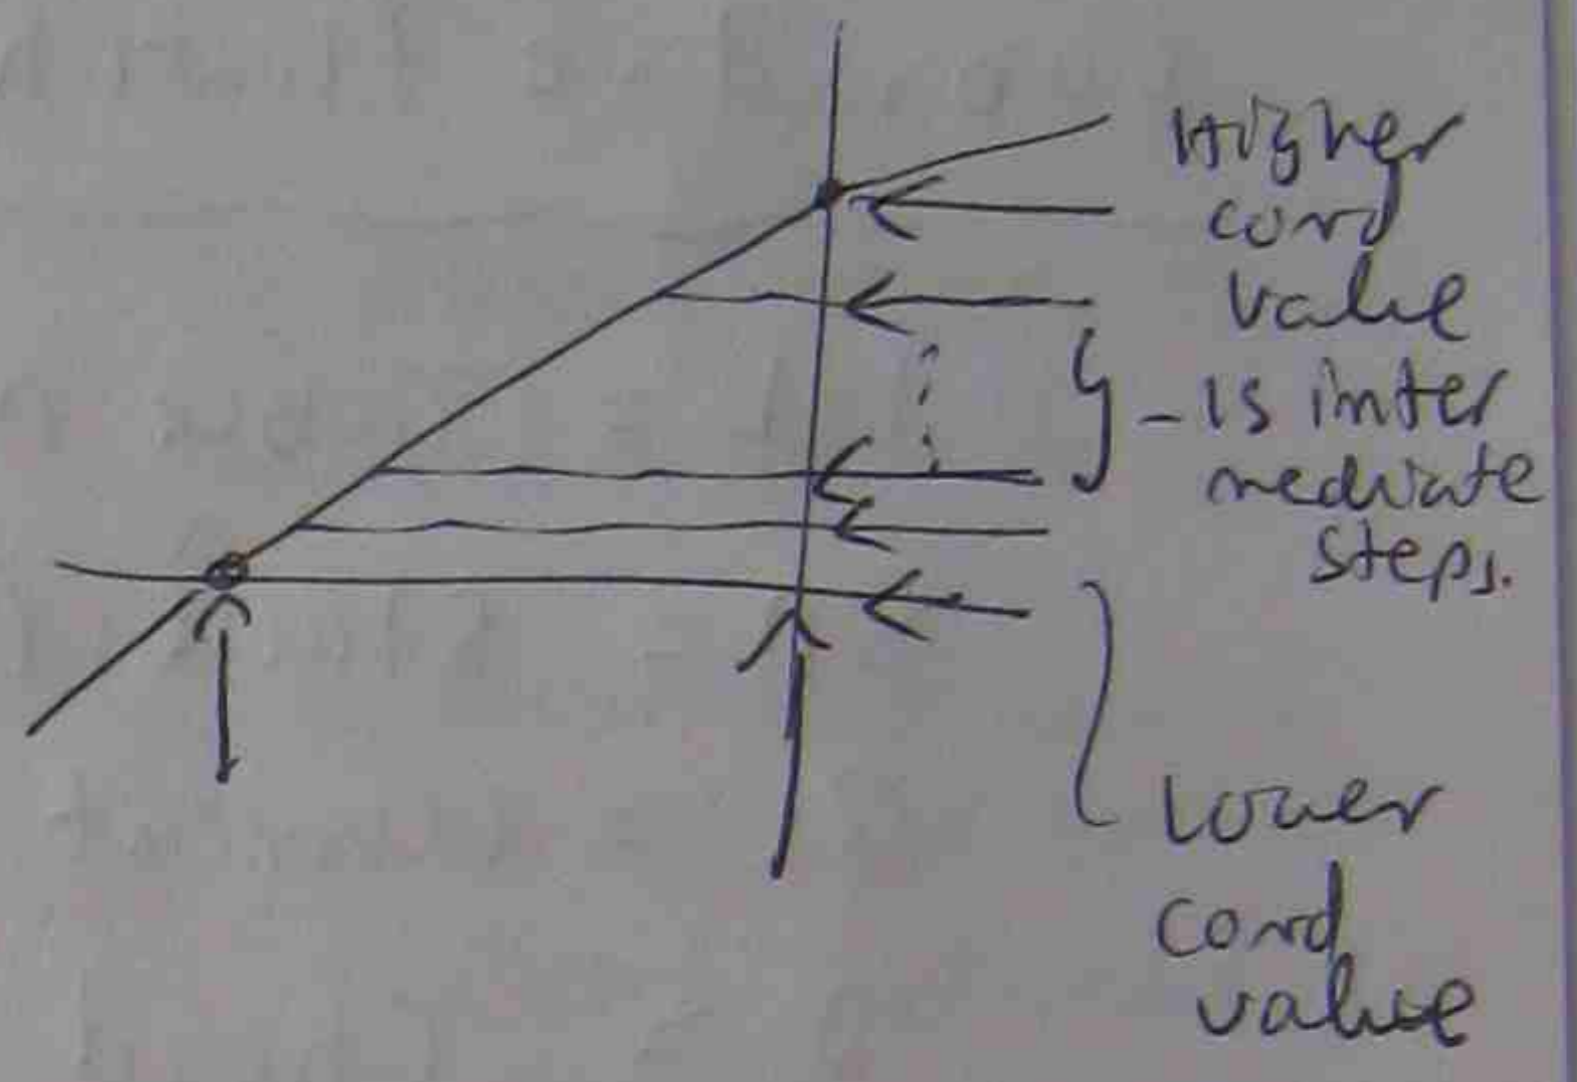 Higher
cord
value
- 15 inter
mediate
steps.
Lower
cord
value